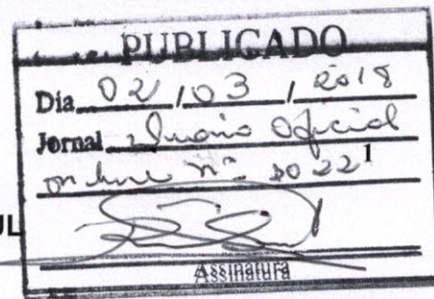 PUBLICADO
Dia 02 / 03 / 2018
Jornal Diário Oficial
on line nº 2022
1
UL
Assinatura